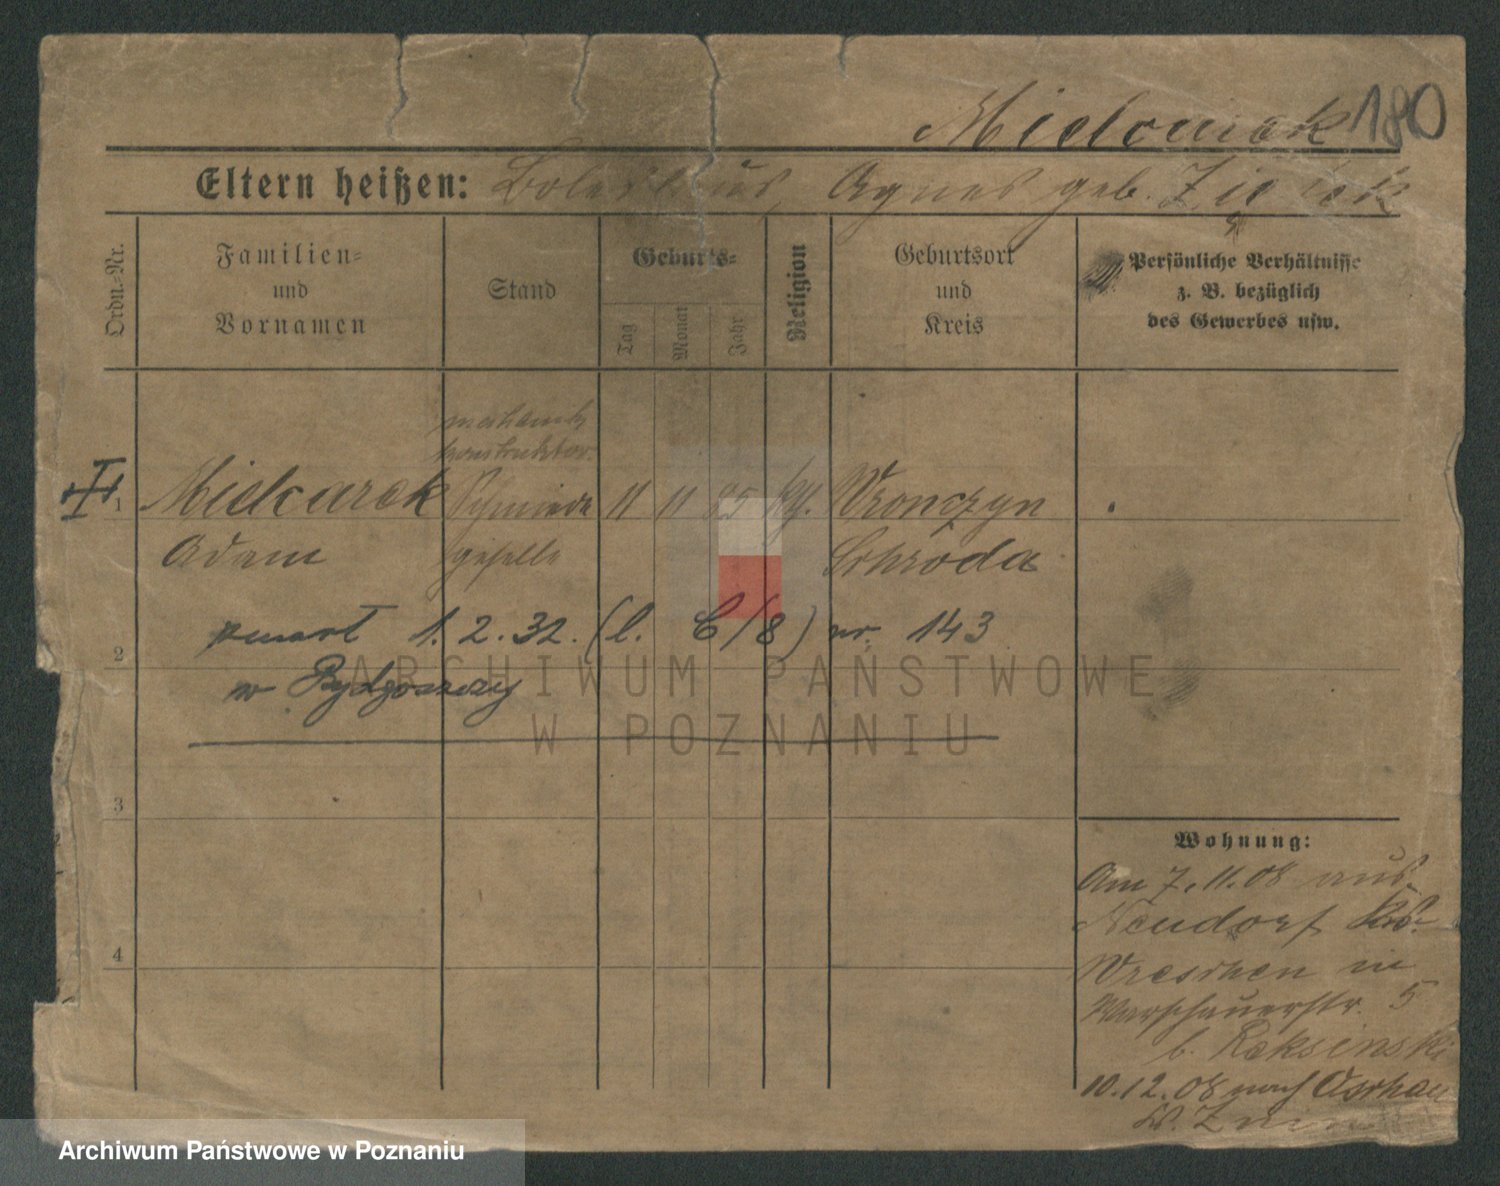 180
Eltern heißen: Boleslaus, Agnes geb.
Ordn.-Nr.
Familien-
und
Vornamen
Stand
Geburts-
Tag
Monat
Jahr
Religion
Geburtsort
und
Kreis
Persönliche Verhältnisse
z. B. bezüglich
des Gewerbes usw.
konstruktor.
1 Mielcarek Schmiede 11 11 kth. Wronczyn
Adam geselle Schroda
zmarł 1.2.32. (l. C/8) nr. 143
2
w Bydgoszczy
ARCHIWUM PAŃSTWOWE
W POZNANIU
3
4
Wohnung:
Am 7.11.08 aus
Neudorf Krs.
Wreschen in
Warschauerstr. 5
b. Reksinski
10.12.08 nach
Archiwum Państwowe w Poznaniu